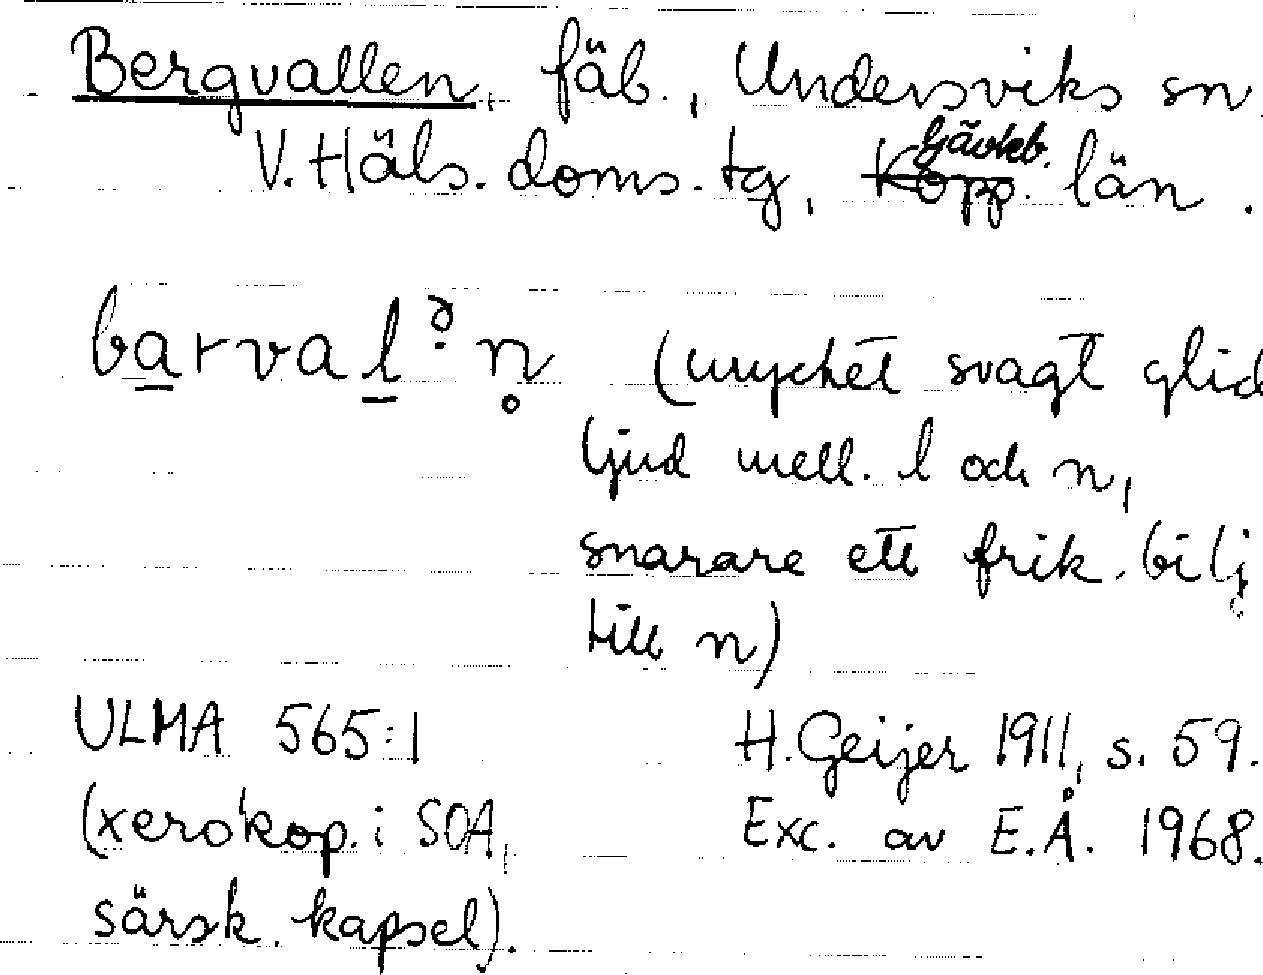 Bergvallen, fäb., Undersviks sn
V. Häls. doms. tg, Gävleb. län.
barvalᵊn̥ (mycket svagt glid
ljud mell. l och n,
snarare ett frik. bilj
till n)
ULMA 565:1 H. Geijer 1911, s. 59.
(xerokop. i SOA, Exc. av E.Å. 1968.
särsk. kapsel).